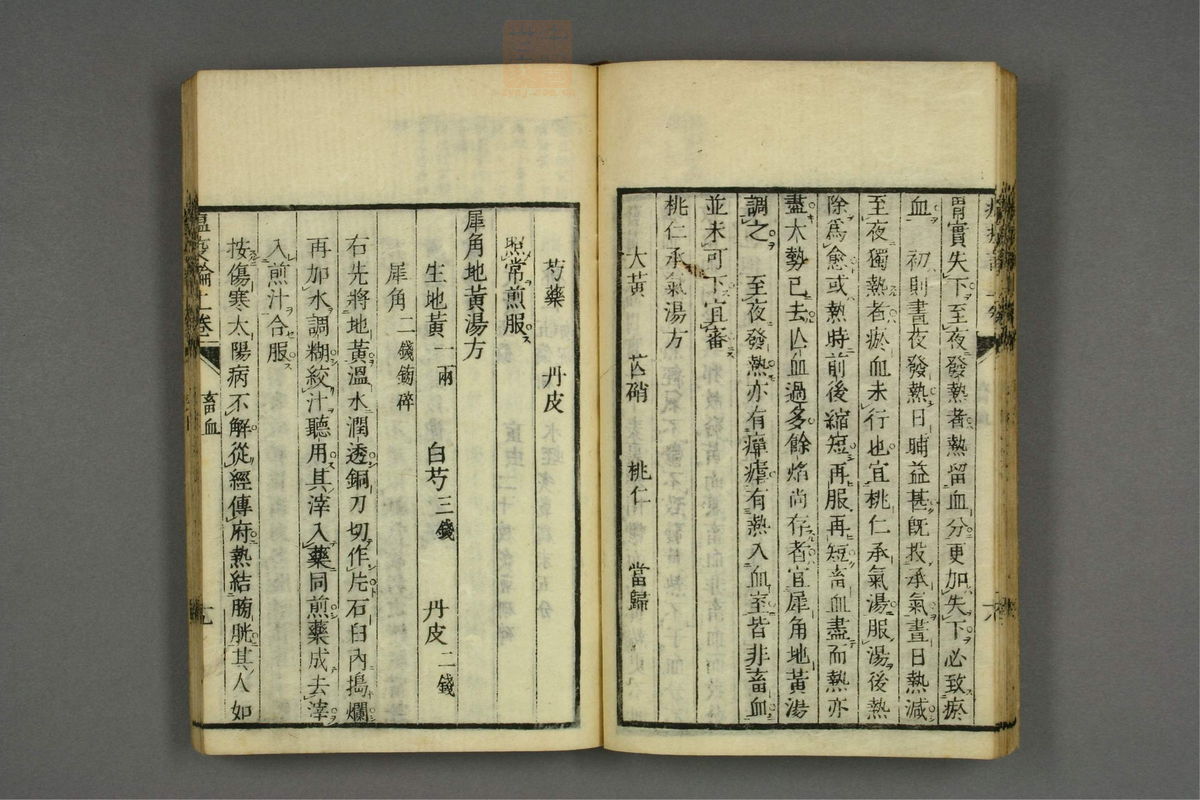 胃實失下至夜發熱者熱留血分更加失下必致瘀
血　初則晝夜發熱日晡益甚旣投承氣晝日熱減
至夜獨熱者瘀血未行也宜桃仁承氣湯服湯後熱
除爲愈或熱時前後縮短再服再短畜血盡而熱亦
盡大勢已去亾血過多餘焰尚存者宜犀角地黃湯
調之　至夜發熱亦有癉瘧有熱入血室皆非畜血
並未可下宜審
桃仁承氣湯方
大黃　芒硝　桃仁　當歸
芍藥　丹皮
照常煎服
犀角地黃湯方
生地黃一兩　白芍三錢　丹皮二錢
犀角二錢鎊碎
右先將地黃溫水潤透銅刀切作片石臼內搗爛
再加水調糊絞汁聽用其滓入藥同煎藥成去滓
入煎汁合服
按傷寒太陽病不解從經傳府熱結膀胱其人如
瘟疫論上卷　畜血